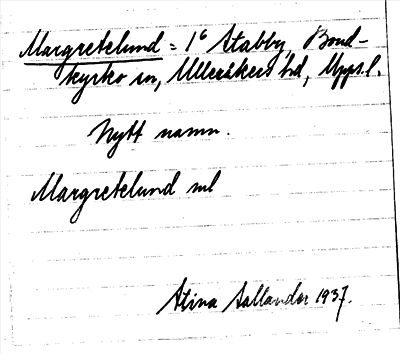 Margretelund = 1⁶ Stabby, Bond-
kyrko sn, Ulleråkers hd, Upps.l.
Nytt namn.
Margretelund ml
Stina Sallander 1937.